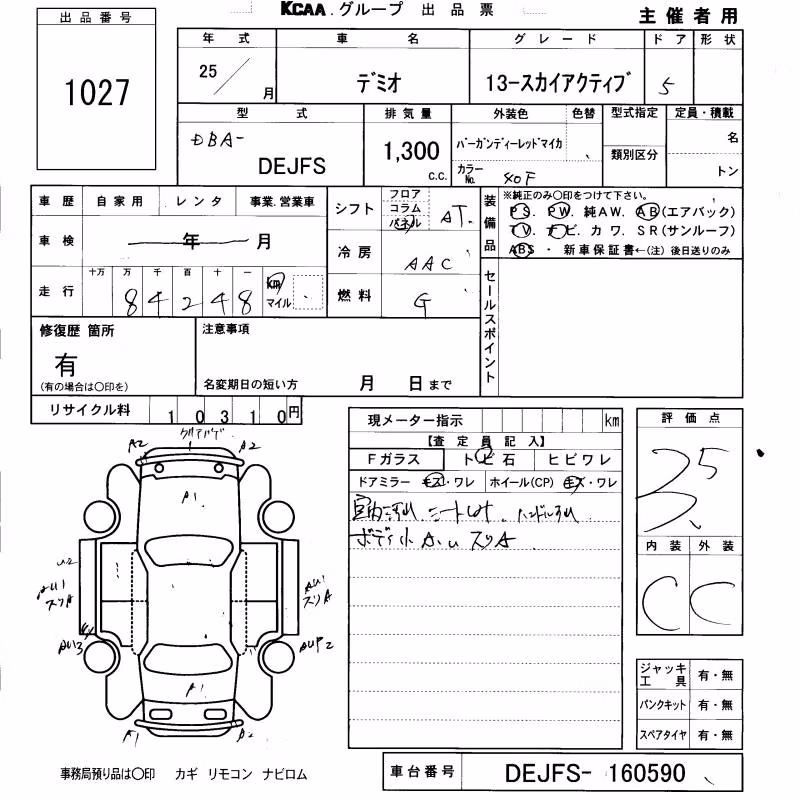 KCAA.グループ 出品票
主催者用
出品番号
1027
年式 車名 グレード ドア 形状
25/月 デミオ 13-スカイアクティブ 5
型式 排気量 外装色 色替 型式指定 定員・積載
DBA-
DEJFS
1,300 c.c.
バーガンディーレッドマイカ
カラーNo. 40F
類別区分
名
トン
車歴 自家用 レンタ 事業.営業車
車検 年 月
走行 十万 万 千 百 十 一
84248 km マイル
シフト フロア コラム パネル AT.
冷房 AAC
燃料 G
装備品
※純正のみ〇印をつけて下さい。
PS. PW. 純AW. AB(エアバック)
TV. ナビ. カワ. SR(サンルーフ)
ABS ・ 新車保証書←(注)後日送りのみ
セールスポイント
修復歴 箇所
有
(有の場合は〇印を)
注意事項
名変期日の短い方 月 日まで
リサイクル料 10310円
現メーター指示 km
【査定員記入】
Fガラス トビ石 ヒビワレ
ドアミラー キズ・ワレ ホイール(CP) キズ・ワレ
ハンドル
ボディ小A.U スリA
評価点
3.5
内装 外装
C C
A2 A2
A1
U2
AU1
スリA
AU1
スリA
AU3
AUP2
A1
A1 A2
ジャッキ工具 有・無
パンクキット 有・無
スペアタイヤ 有・無
事務局預り品は〇印 カギ リモコン ナビロム
車台番号 DEJFS- 160590